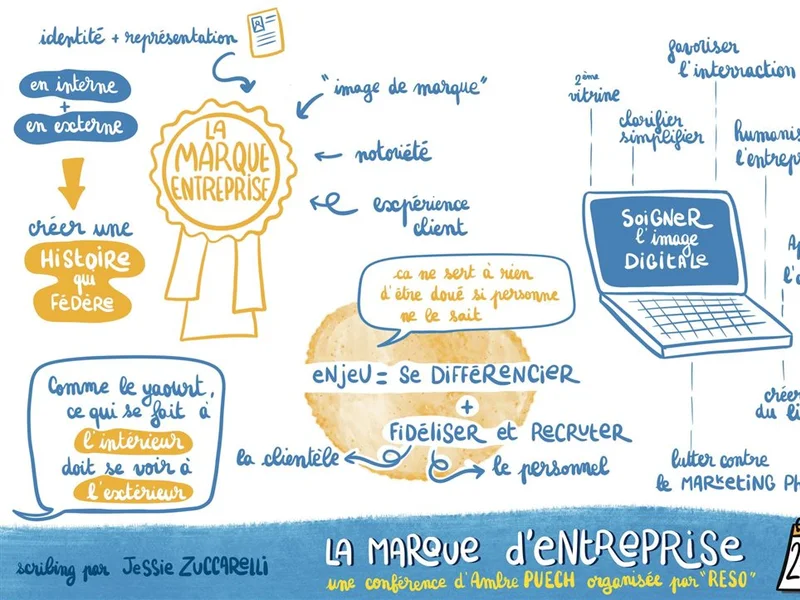 identité + représentation
en interne
+
en externe
créer une
HISTOIRE
qui
FÉDÈRE
LA
MARQUE
ENTREPRISE
"image de marque"
notoriété
expérience
client
2ème
vitrine
clarifier
simplifier
favoriser
l'interraction
SOIGNER
l'image
DIGITALE
lutter contre
le MARKETING
ca ne sert à rien
d'être doué si personne
ne le sait
ENJEU = SE DIFFÉRENCIER
+
FIDÉLISER et RECRUTER
la clientèle
le personnel
Comme le yaourt,
ce qui se fait à
l'intérieur
doit se voir à
l'extérieur
scribing par Jessie ZUCCARELLI
LA MARQUE d'ENTREPRISE
une conférence d'Ambre PUECH organisée par "RESO"